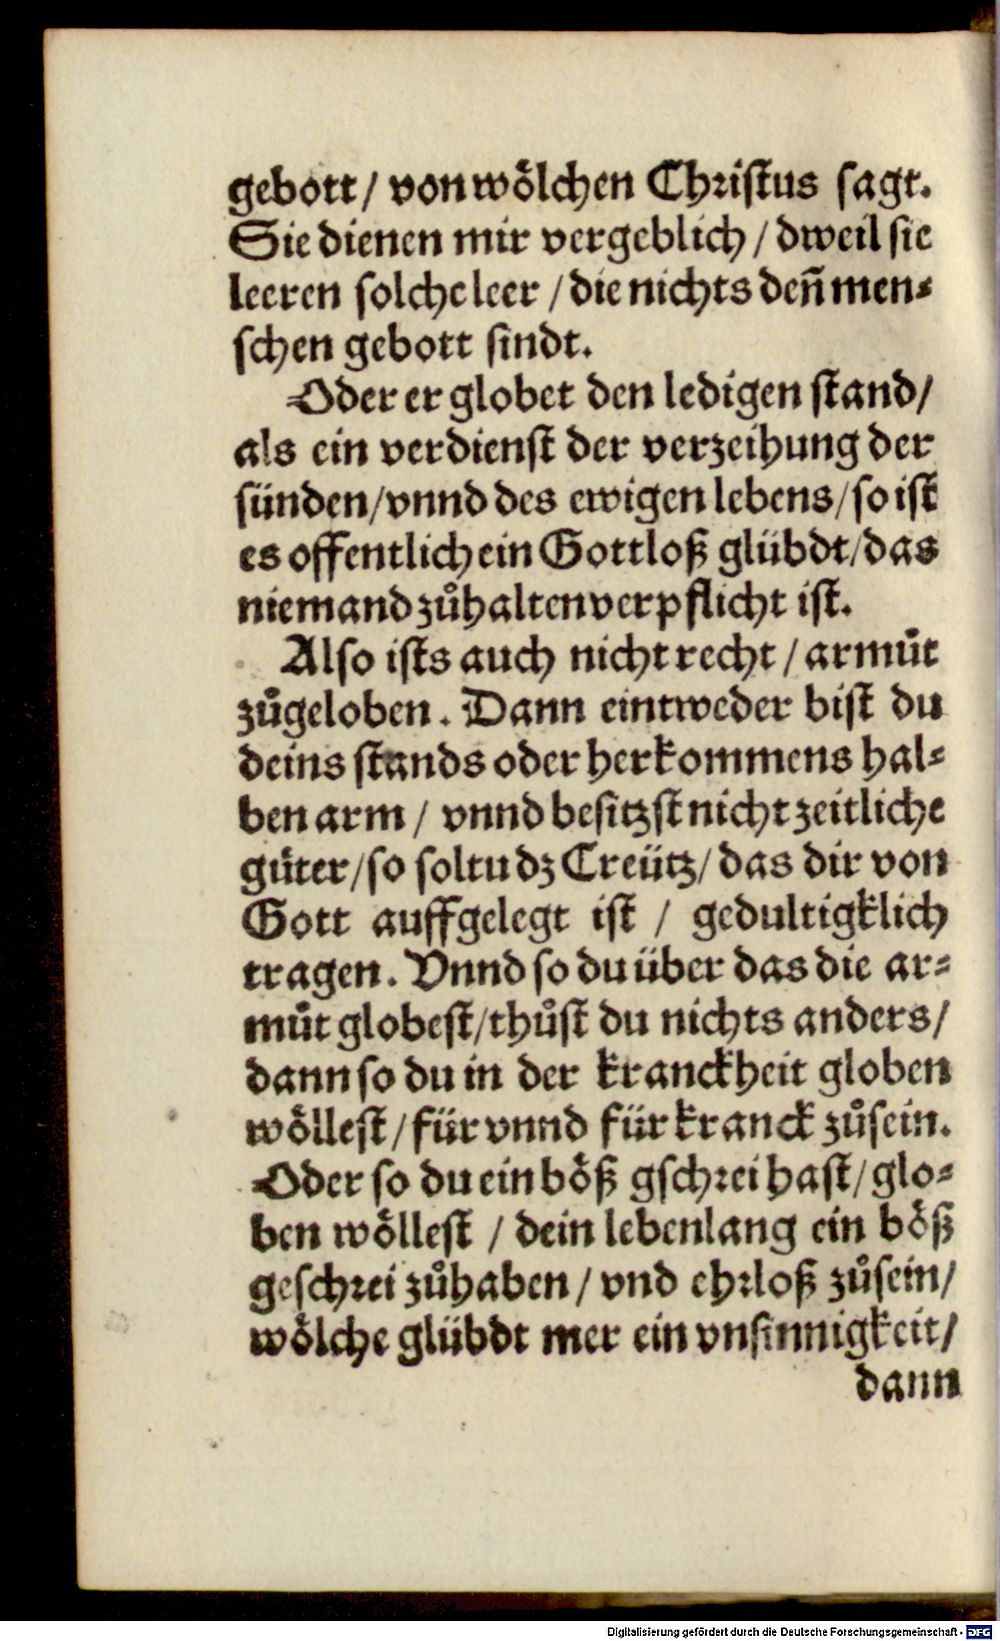 gebott / von wölchen Christus sagt.
Sie dienen mir vergeblich / dweil sie
leeren solche leer / die nichts deñ men⸗
schen gebott sindt.
Oder er globet den ledigen stand /
als ein verdienst der verzeihung der
sünden / vnnd des ewigen lebens / so ist
es offentlich ein Gottloß glübdt / das
niemand zůhalten verpflicht ist.
Also ists auch nicht recht / armůt
zůgeloben. Dann eintweder bist du
deins stands oder herkommens hal⸗
ben arm / vnnd besitzst nicht zeitliche
gůter / so soltu dz Creütz / das dir von
Gott auffgelegt ist / gedultigklich
tragen. Vnnd so du über das die ar⸗
můt globest / thůst du nichts anders /
dann so du in der kranckheit globen
wöllest / für vnnd für kranck zůsein.
Oder so du ein böß gschrei hast / glo⸗
ben wöllest / dein lebenlang ein böß
geschrei zůhaben / vnd ehrloß zůsein /
wölche glübdt mer ein vnsinnigkeit /
dann
Digitalisierung gefördert durch die Deutsche Forschungsgemeinschaft - DFG